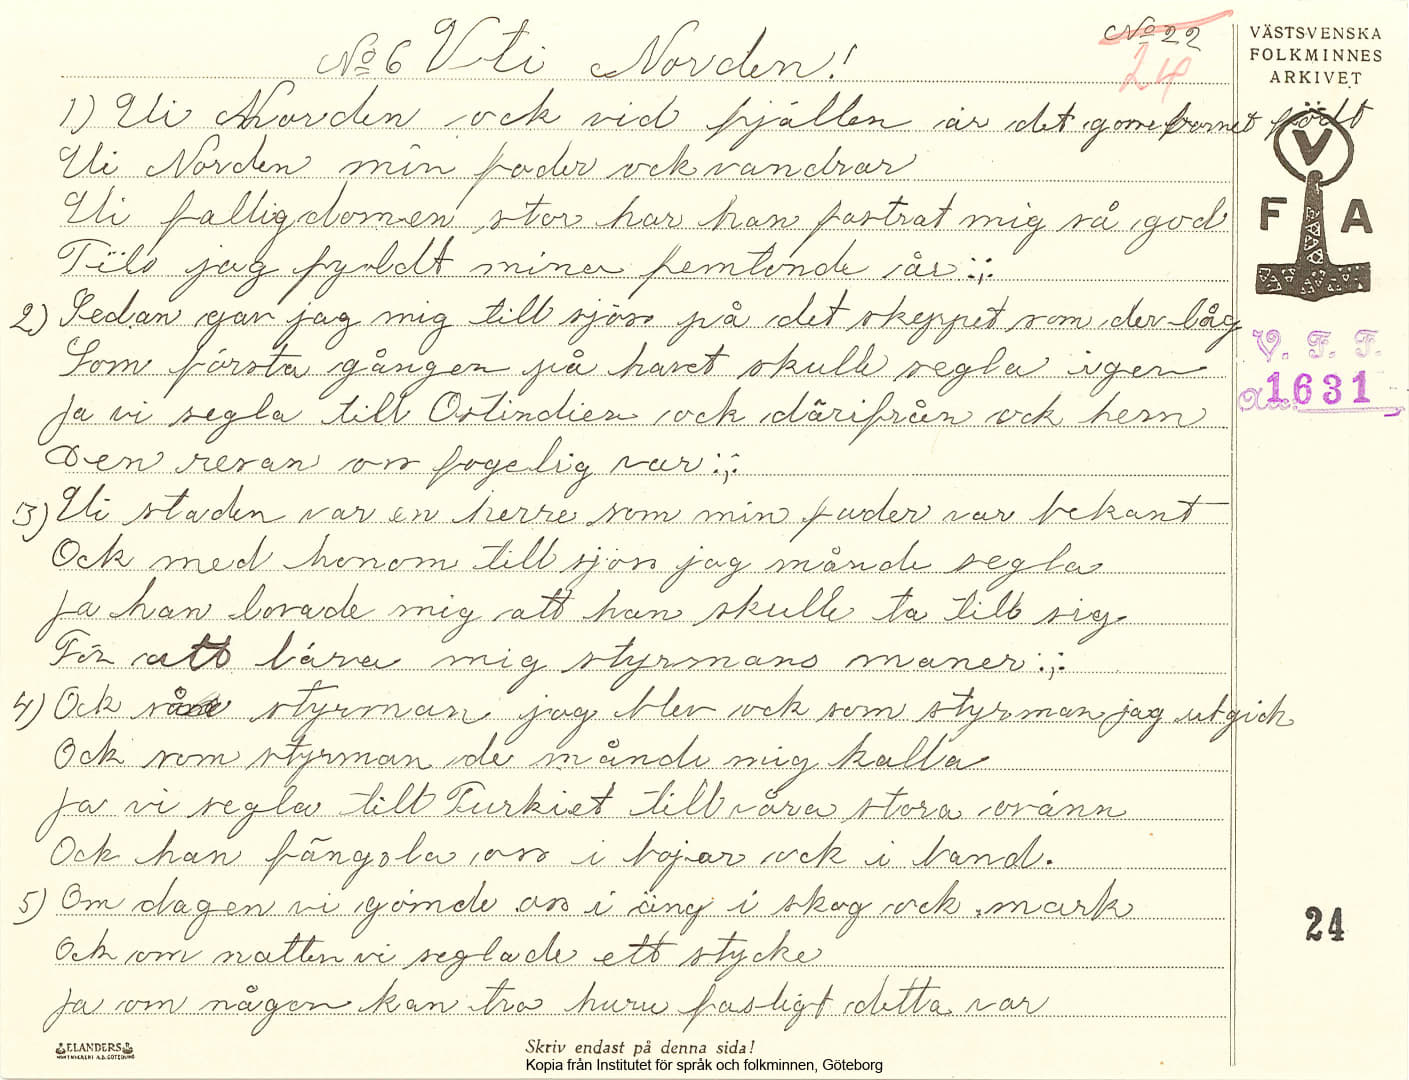 No 6 Uti Norden!
No 22
24
VÄSTSVENSKA
FOLKMINNES
ARKIVET
V
F A
1) Uti Norden ock vid fjällen är det gossebarnet född
Uti Norden min fader ock vandrar
Uti fattigdomen stor har han fostrat mig så god
Tils jag fyldt mina femtonde år :;:
2) Sedan gav jag mig till sjöss på det skeppet som der låg
Som första gången på havet skulle segla igen
Ja vi segla till Ostindien ock därifrån ock hem
Den resan oss fogelig var :;:
3) Uti staden var en herre som min fader var bekant
Ock med honom till sjöss jag månde segla
Ja han lovade mig att han skulle ta till sig
För att lära mig styrmans maner :;:
4) Ock styrman jag blev ock som styrman jag utgick
Ock som styrman de månde mig kalla
Ja vi segla till Turkiet till våra stora ovänn
Ock han fängsla oss i bojar ock i band.
5) Om dagen vi gömde oss i äng i skog ock mark
Ock om natten vi seglade ett stycke
Ja om någon kan tro huru fasligt detta var
V. F. F.
1631
24
ELANDERS
Skriv endast på denna sida!
Kopia från Institutet för språk och folkminnen, Göteborg